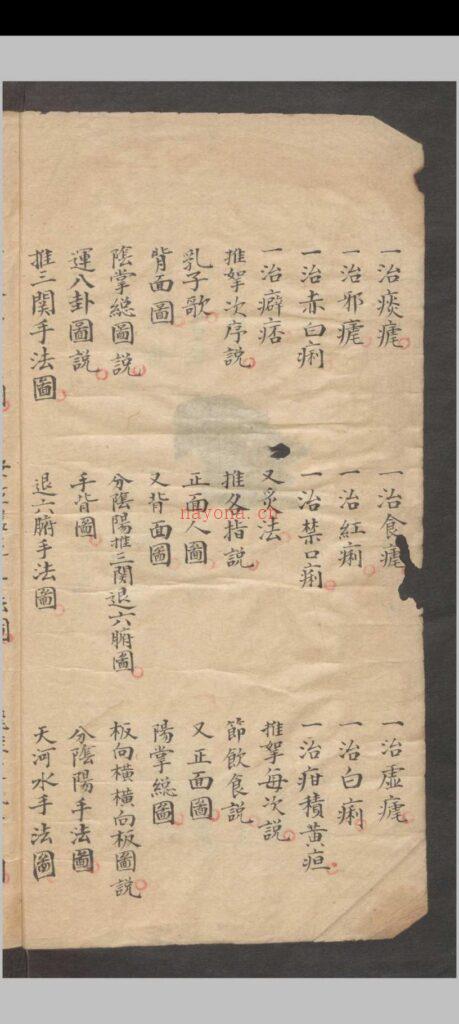 一治痰瘧 一治食瘧 一治虛瘧
一治邪瘧 一治紅痢 一治白痢
一治赤白痢 一治禁口痢 一治疳積黃疸
一治癖痞 又灸法 推拏每次說
推拏次序說 推各指說 節飲食說
乳子歌 正面人圖 又正面圖
背面圖 又背面圖 陽掌總圖
陰掌總圖說 分陰陽推三関退六腑圖 板向橫橫向板圖說
運八卦圖說 手背圖 分陰陽手法圖
推三関手法圖 退六腑手法圖 天河水手法圖
nayona.cn